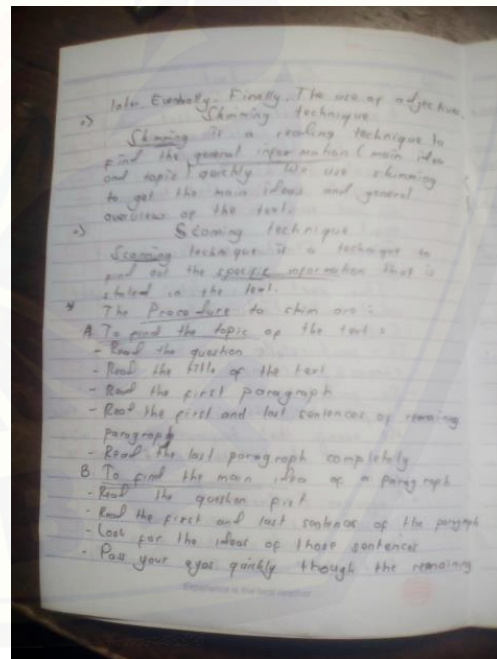 later Eventually. Finally. The use of adjectives.
•) Skiming technique
Skimming is a reading technique to
find the general information (main idea
and topic) quickly. We use skimming
to get the main ideas and general
overview of the text.
•) Scaming technique
Scanning technique is a technique to
find out the specific information that is
stated in the text.
* The Procedure to skim are :
A. To find the topic of the text :
- Read the question
- Read the title of the text
- Read the first paragraph
- Read the first and last sentences of remaining
paragraph
- Read the last paragraph completely
B. To find the main idea of a paragraph
- Read the question first
- Read the first and last sentence of the paragraph
- Look for the ideas of those sentences
- Pass your eyes quickly though the remaining
Experience is the best teacher